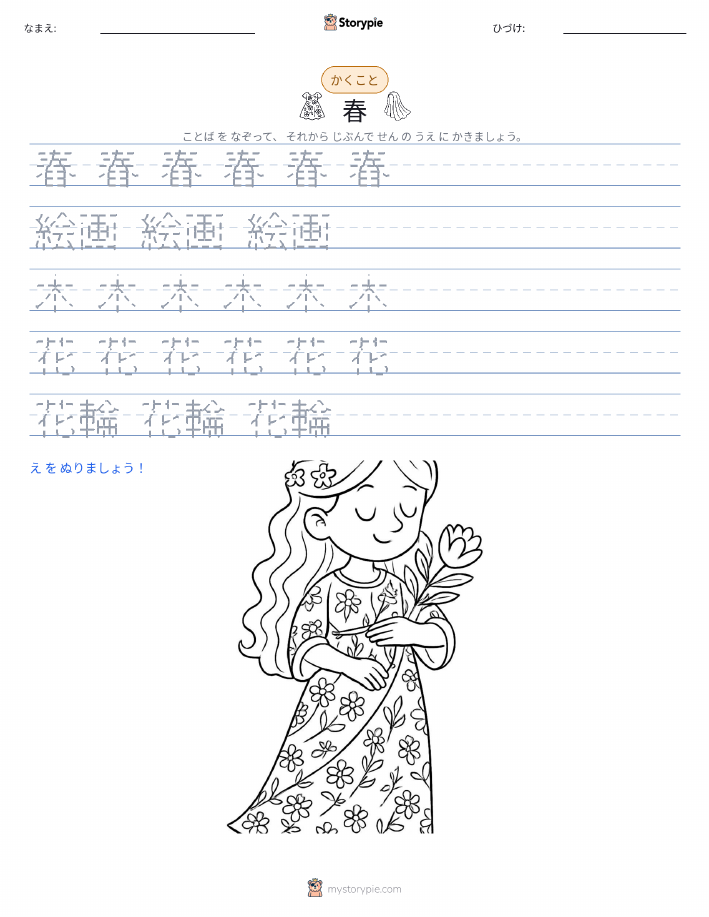 なまえ: Storypie ひづけ:
かくこと
春
ことば を なぞって、 それから じぶんで せん の うえ に かきましょう。
春 春 春 春 春 春
絵画 絵画 絵画
木 木 木 木 木 木
花 花 花 花 花 花
花輪 花輪 花輪
え を ぬりましょう！
mystorypie.com